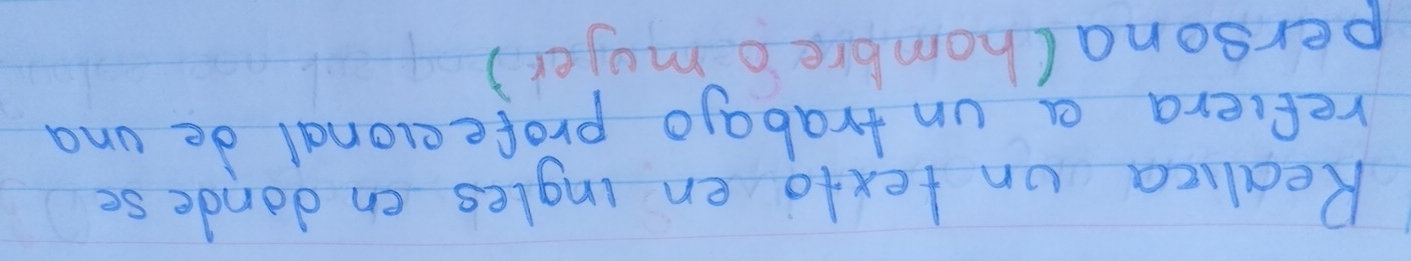 Realiza un texto en ingles en donde se
refiera a un trabajo profecional de una
persona (hombre o mujer)